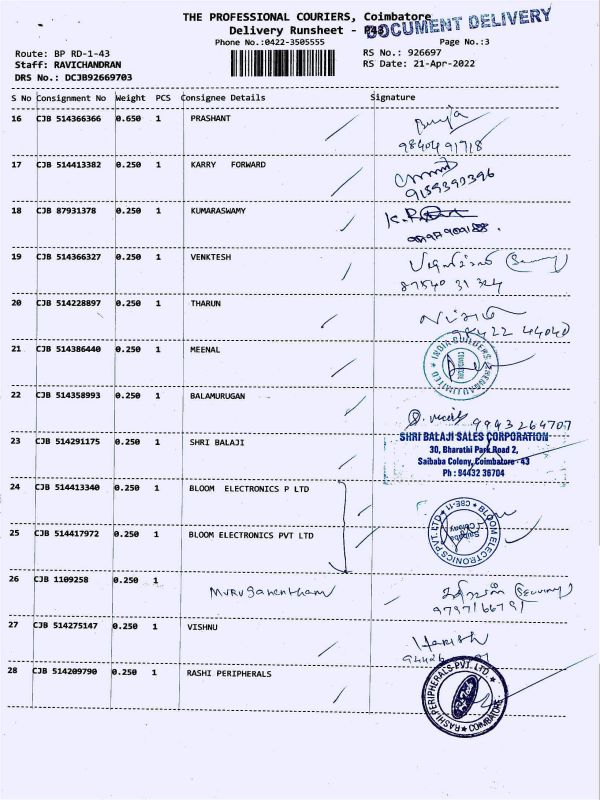 THE PROFESSIONAL COURIERS, Coimbatore
DOCUMENT DELIVERY
Delivery Runsheet - P43
Phone No.:0422-3505555
Page No.:3
Route: BP RD-1-43
RS No.: 926697
Staff: RAVICHANDRAN
RS Date: 21-Apr-2022
DRS No.: DCJB92669703
S No Consignment No Weight PCS Consignee Details Signature
16 CJB 514366366 0.650 1 PRASHANT
9840491718
17 CJB 514413382 0.250 1 KARRY FORWARD
9159393396
18 CJB 87931378 0.250 1 KUMARASWAMY
19 CJB 514366327 0.250 1 VENKTESH
(Security)
87540 31 324
20 CJB 514228897 0.250 1 THARUN
98422 44040
21 CJB 514386440 0.250 1 MEENAL
22 CJB 514358993 0.250 1 BALAMURUGAN
9943264707
23 CJB 514291175 0.250 1 SHRI BALAJI
SHRI BALAJI SALES CORPORATION
30, Bharathi Park Road 2,
Saibaba Colony, Coimbatore - 43
Ph : 94432 36704
24 CJB 514413340 0.250 1 BLOOM ELECTRONICS P LTD
25 CJB 514417972 0.250 1 BLOOM ELECTRONICS PVT LTD
BLOOM ELECTRONICS PVT. LTD
CBE-11
Saibaba
Colony
26 CJB 1109258 0.250 1 Muruganentham
(Security)
27 CJB 514275147 0.250 1 VISHNU
Harish
28 CJB 514209790 0.250 1 RASHI PERIPHERALS
RASHI PERIPHERALS PVT. LTD.
COIMBATORE